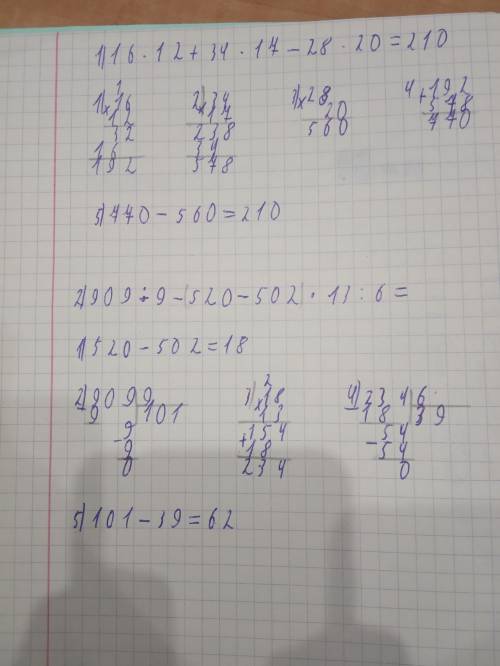 1) 16 · 12 + 34 · 17 - 28 · 20 = 210
1) × 16 2) × 34 3) × 28 4) + 192
12 17 20 578
32 238 560 770
16 34
192 578
5) 770 - 560 = 210
2) 909 ÷ 9 - (520 - 502) · 13 : 6 =
1) 520 - 502 = 18
2) 909 9 3) × 18 4) 234 6
- 9 101 13 - 18 39
- 9 154 54
9 + 18 - 54
0 234 0
5) 101 - 39 = 62